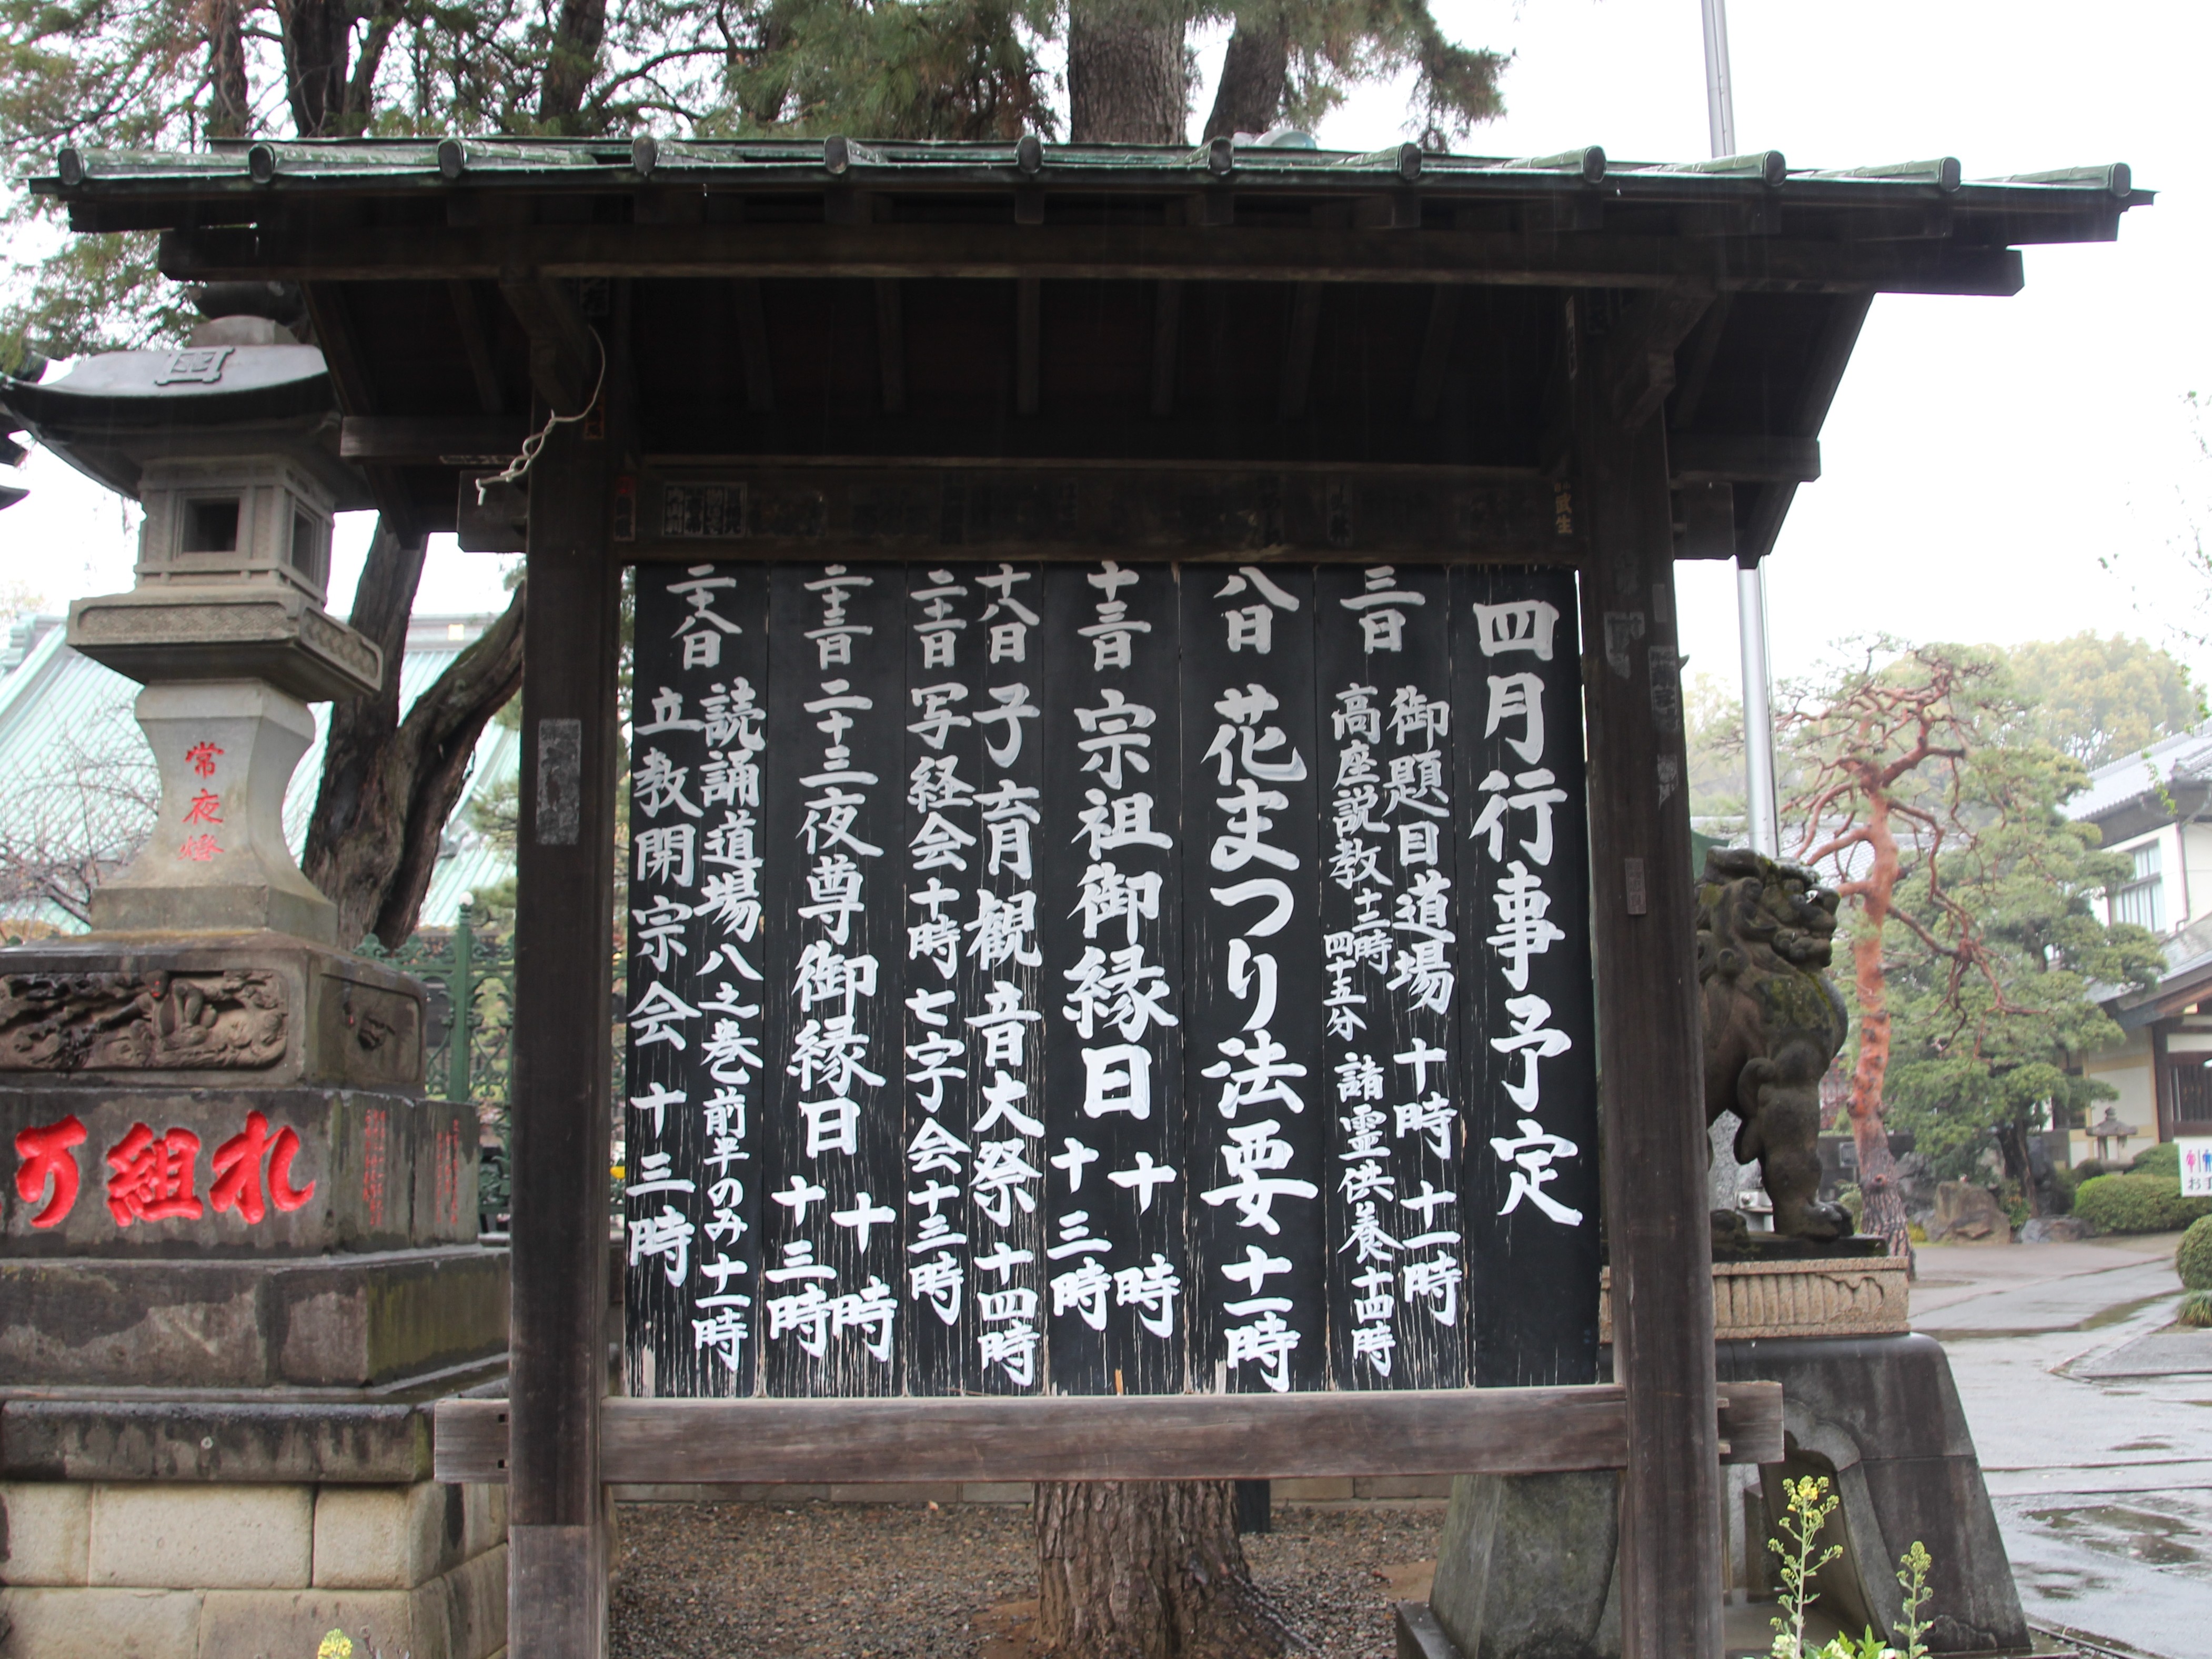 四月行事予定
三日
御題目道場 十時 十一時
高座説教十二時四十五分 諸霊供養十四時
八日 花まつり法要十一時
十三日 宗祖御縁日 十時
十三時
十八日 子育観音大祭十四時
二十日 写経会十時 七字会十三時
二十三日 二十三夜尊御縁日 十時
十三時
二十八日
読誦道場八之巻前半のみ十一時
立教開宗会 十三時
常夜燈
れ組り
武生